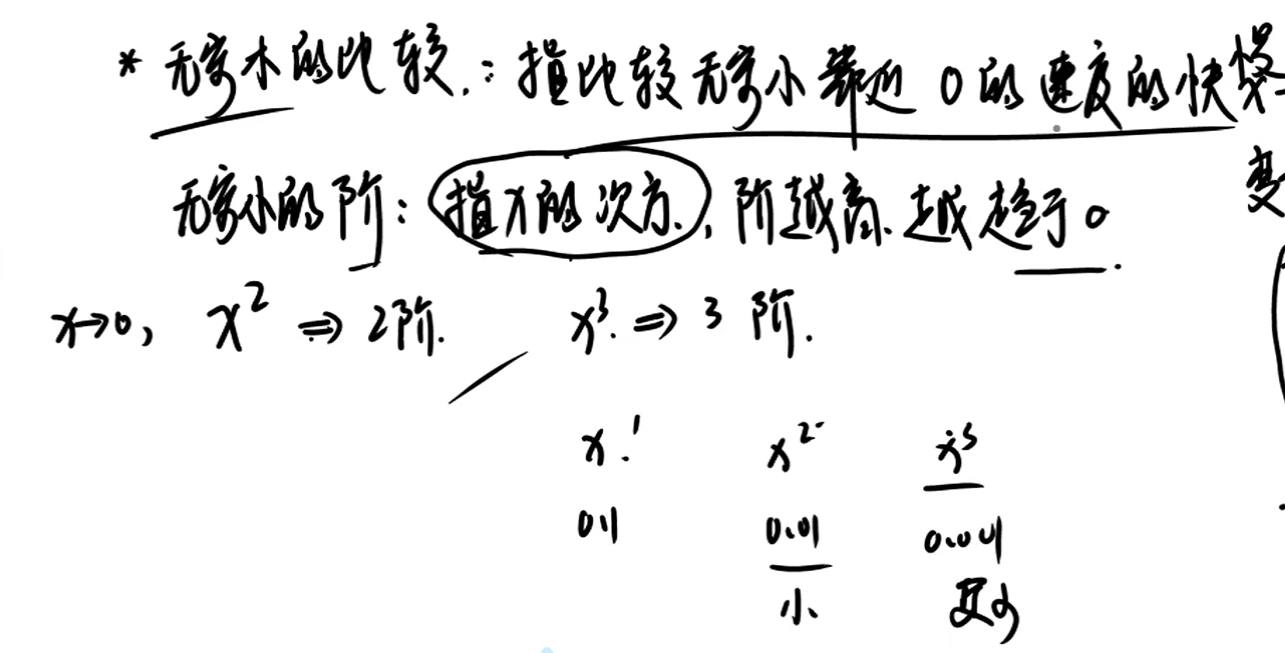 * 无穷小的比较.: 指比较无穷小靠近 0 的速度的快慢
无穷小的阶: 指x的次方, 阶越高, 越趋于0.
变
x→0, x² ⇒ 2阶. x³ ⇒ 3 阶.
x¹ x² x³
0.1 0.01 0.001
小 更小